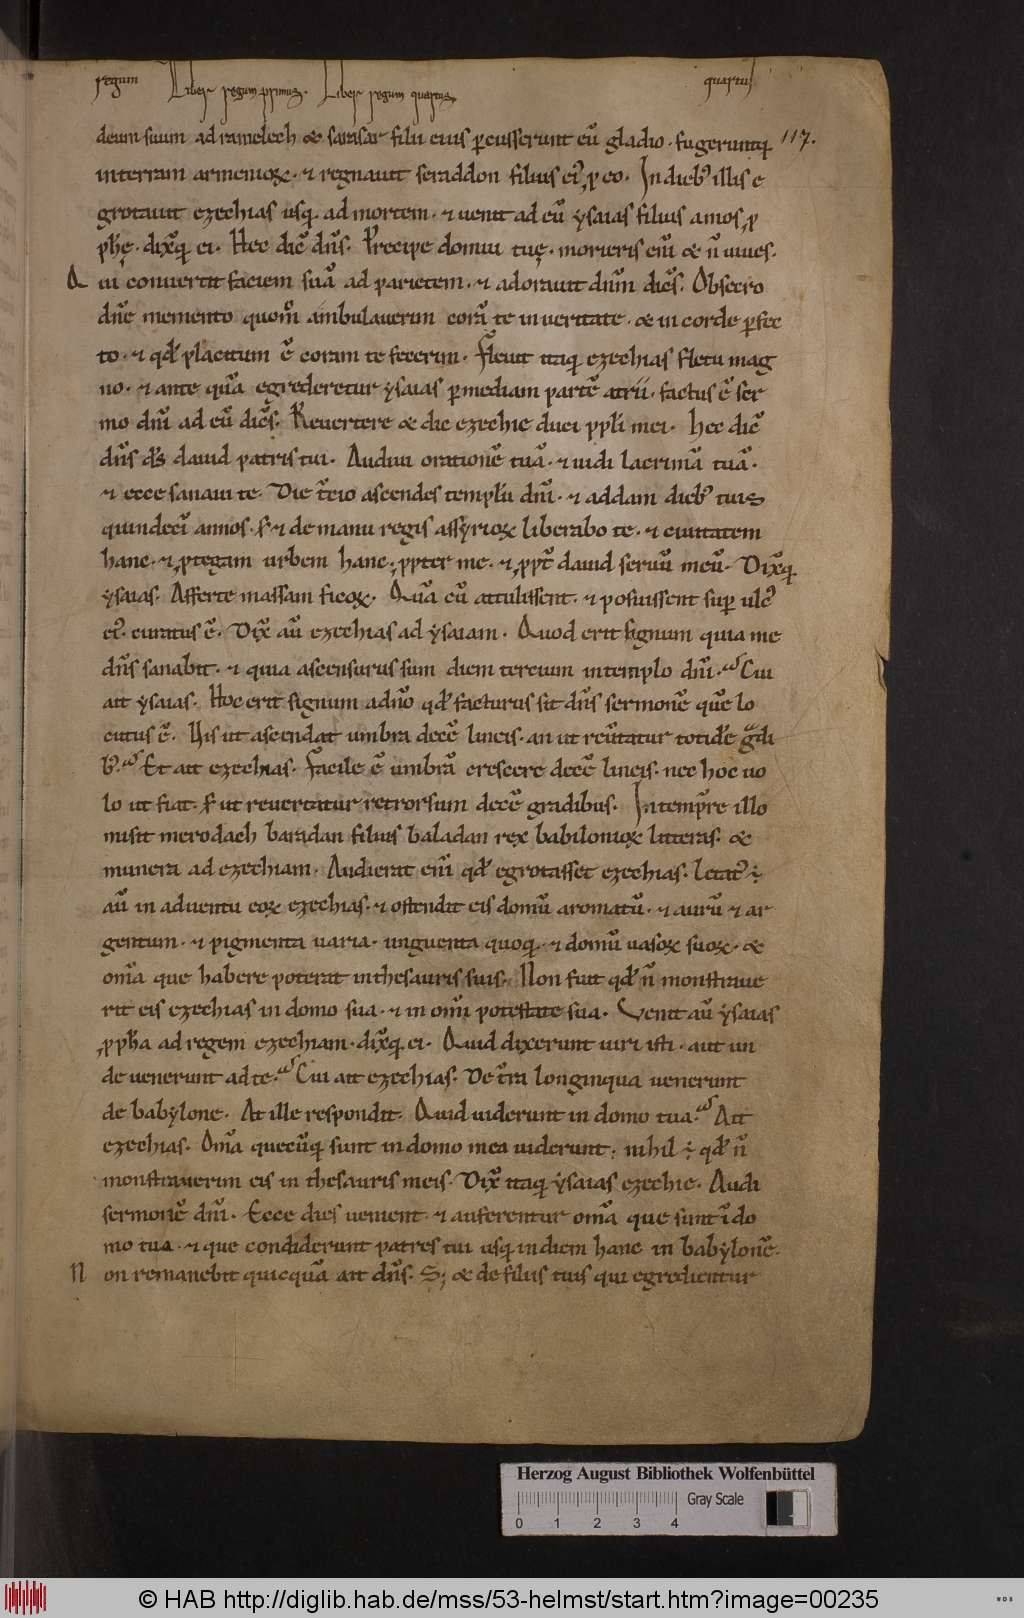 regum Liber regum primus. Liber regum quartus quartus
deum suum adramelech & sarasar filii eius ꝑcusserunt eũ gladio. fugeruntq;
in terram armenioꝝ. ⁊ regnauit seraddon filius ei᷒ ꝓ eo. In dieb᷒ illis e
grotauit ezechias usq; ad mortem. ⁊ uenit ad eũ ẏsaias filius amos ꝓ
ph̃ę. dix̃q; ei. Hec dic̃ dñs. Precipe domui tuę. morieris enĩ & ñ uiues.
Qui conuertit faciem suã ad parietem. ⁊ adorauit dñm dic̃s. Obsecro
dñe memento quom̊ ambulauerim corã te in ueritate. & in corde ꝑfec
to. ⁊ qđ placitum ẽ coram te fecerim. Fleuit itaq; ezechias fletu mag
no. ⁊ ante quã egrederetur ẏsaias ꝑ mediam partẽ atrii. factus ẽ ser
mo dñi ad eũ dic̃s. Reuertere & dic ezechie duci pp̃li mei. Hec dic̃
dñs dš dauid patris tui. Audiui orationẽ tuã. ⁊ uidi lacrimã tuã.
⁊ ecce sanaui te. Die t̃cio ascendes templũ dñi. ⁊ addam dieb᷒ tuis
quindeci᷑ annos. s; ⁊ de manu regis assẏrioꝝ liberabo te. ⁊ ciuitatem
hanc. ⁊ ꝓtegam urbem hanc. ꝓpter me. ⁊ ꝓpt̃ dauid seruũ meũ. Dix̃q;
ẏsaias. Afferte massam ficoꝝ. Quã cũ attulissent. ⁊ posuissent suꝑ ulc᷒
ei᷒. curatus ẽ. Dix̃ aũ ezechias ad ẏsaiam. Quod erit signum quia me
dñs sanabit. ⁊ quia ascensurus sum diem tercium in templo dñi. Cui
ait ẏsaias. Hoc erit signum a dño qđ facturus sit dñs sermonẽ quẽ lo
cutus ẽ. Uis ut ascendat umbra decẽ lineis. an ut reũtatur totidẽ gᵃdi
b᷒. Et ait ezechias. Facile ẽ umbrã crescere decẽ lineis. nec hoc uo
lo ut fiat. s; ut reuertatur retrorsum decẽ gradibus. In temp̃re illo
misit merodach baradan filius baladan rex babilonioꝝ litteras. &
munera ad ezechiam. Audierat enĩ qđ egrotasset ezechias. Letat᷒ ÷
aũ in aduentu eoꝝ ezechias. ⁊ ostendit eis domũ aromatũ. ⁊ aurũ ⁊ ar
gentum. ⁊ pigmenta uaria. unguenta quoq;. ⁊ domũ uasoꝝ suoꝝ. &
om̃a que habere poterat in thesauris suis. Non fuit qđ ñ monstraue
rit eis ezechias in domo sua. ⁊ in om̃i potestate sua. Uenit aũ ẏsaias
ꝓph̃a ad regem ezechiam. dix̃q; ei. Quid dixerunt uiri isti. aut un
de uenerunt ad te. Cui ait ezechias. De t̃ra longinqua uenerunt
de babẏlone. At ille respondit. Quid uiderunt in domo tua. Ait
ezechias. Om̃a quecũq; sunt in domo mea uiderunt. nihil ÷ qđ ñ
monstrauerim eis in thesauris meis. Dix̃ itaq; ẏsaias ezechie. Audi
sermonẽ dñi. Ecce dies uenient. ⁊ auferentur om̃a que sunt ĩ do
mo tua. ⁊ que condiderunt patres tui usq; in diem hanc in babẏlonẽ.
Non remanebit quicquã ait dñs. S; & de filiis tuis qui egredientur
117.
Herzog August Bibliothek Wolfenbüttel
Gray Scale
0 1 2 3 4
© HAB http://diglib.hab.de/mss/53-helmst/start.htm?image=00235